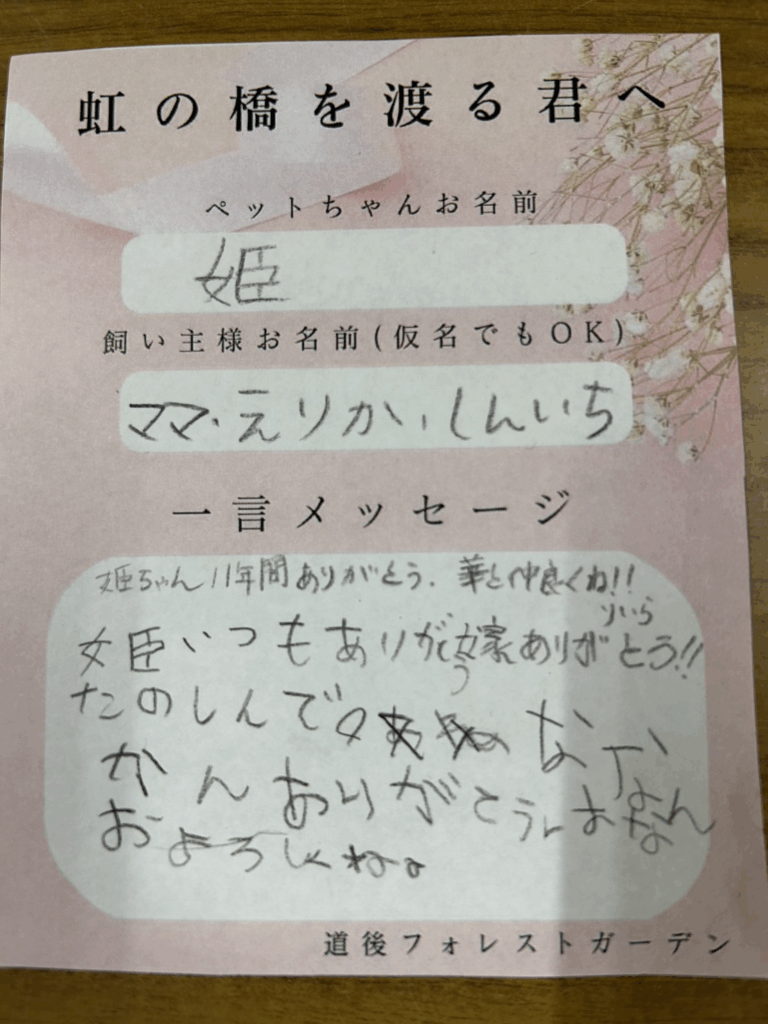 虹の橋を渡る君へ
ペットちゃんお名前
姫
飼い主様お名前(仮名でもOK)
ママ・えりか、しんいち
一言メッセージ
姫ちゃん11年間ありがとう。華と仲良くね!!
りいら
姫いつもありがとう 嫁ありがとう!!
たのしんで なか
かんありがとう はなん
およろしくね。
道後フォレストガーデン